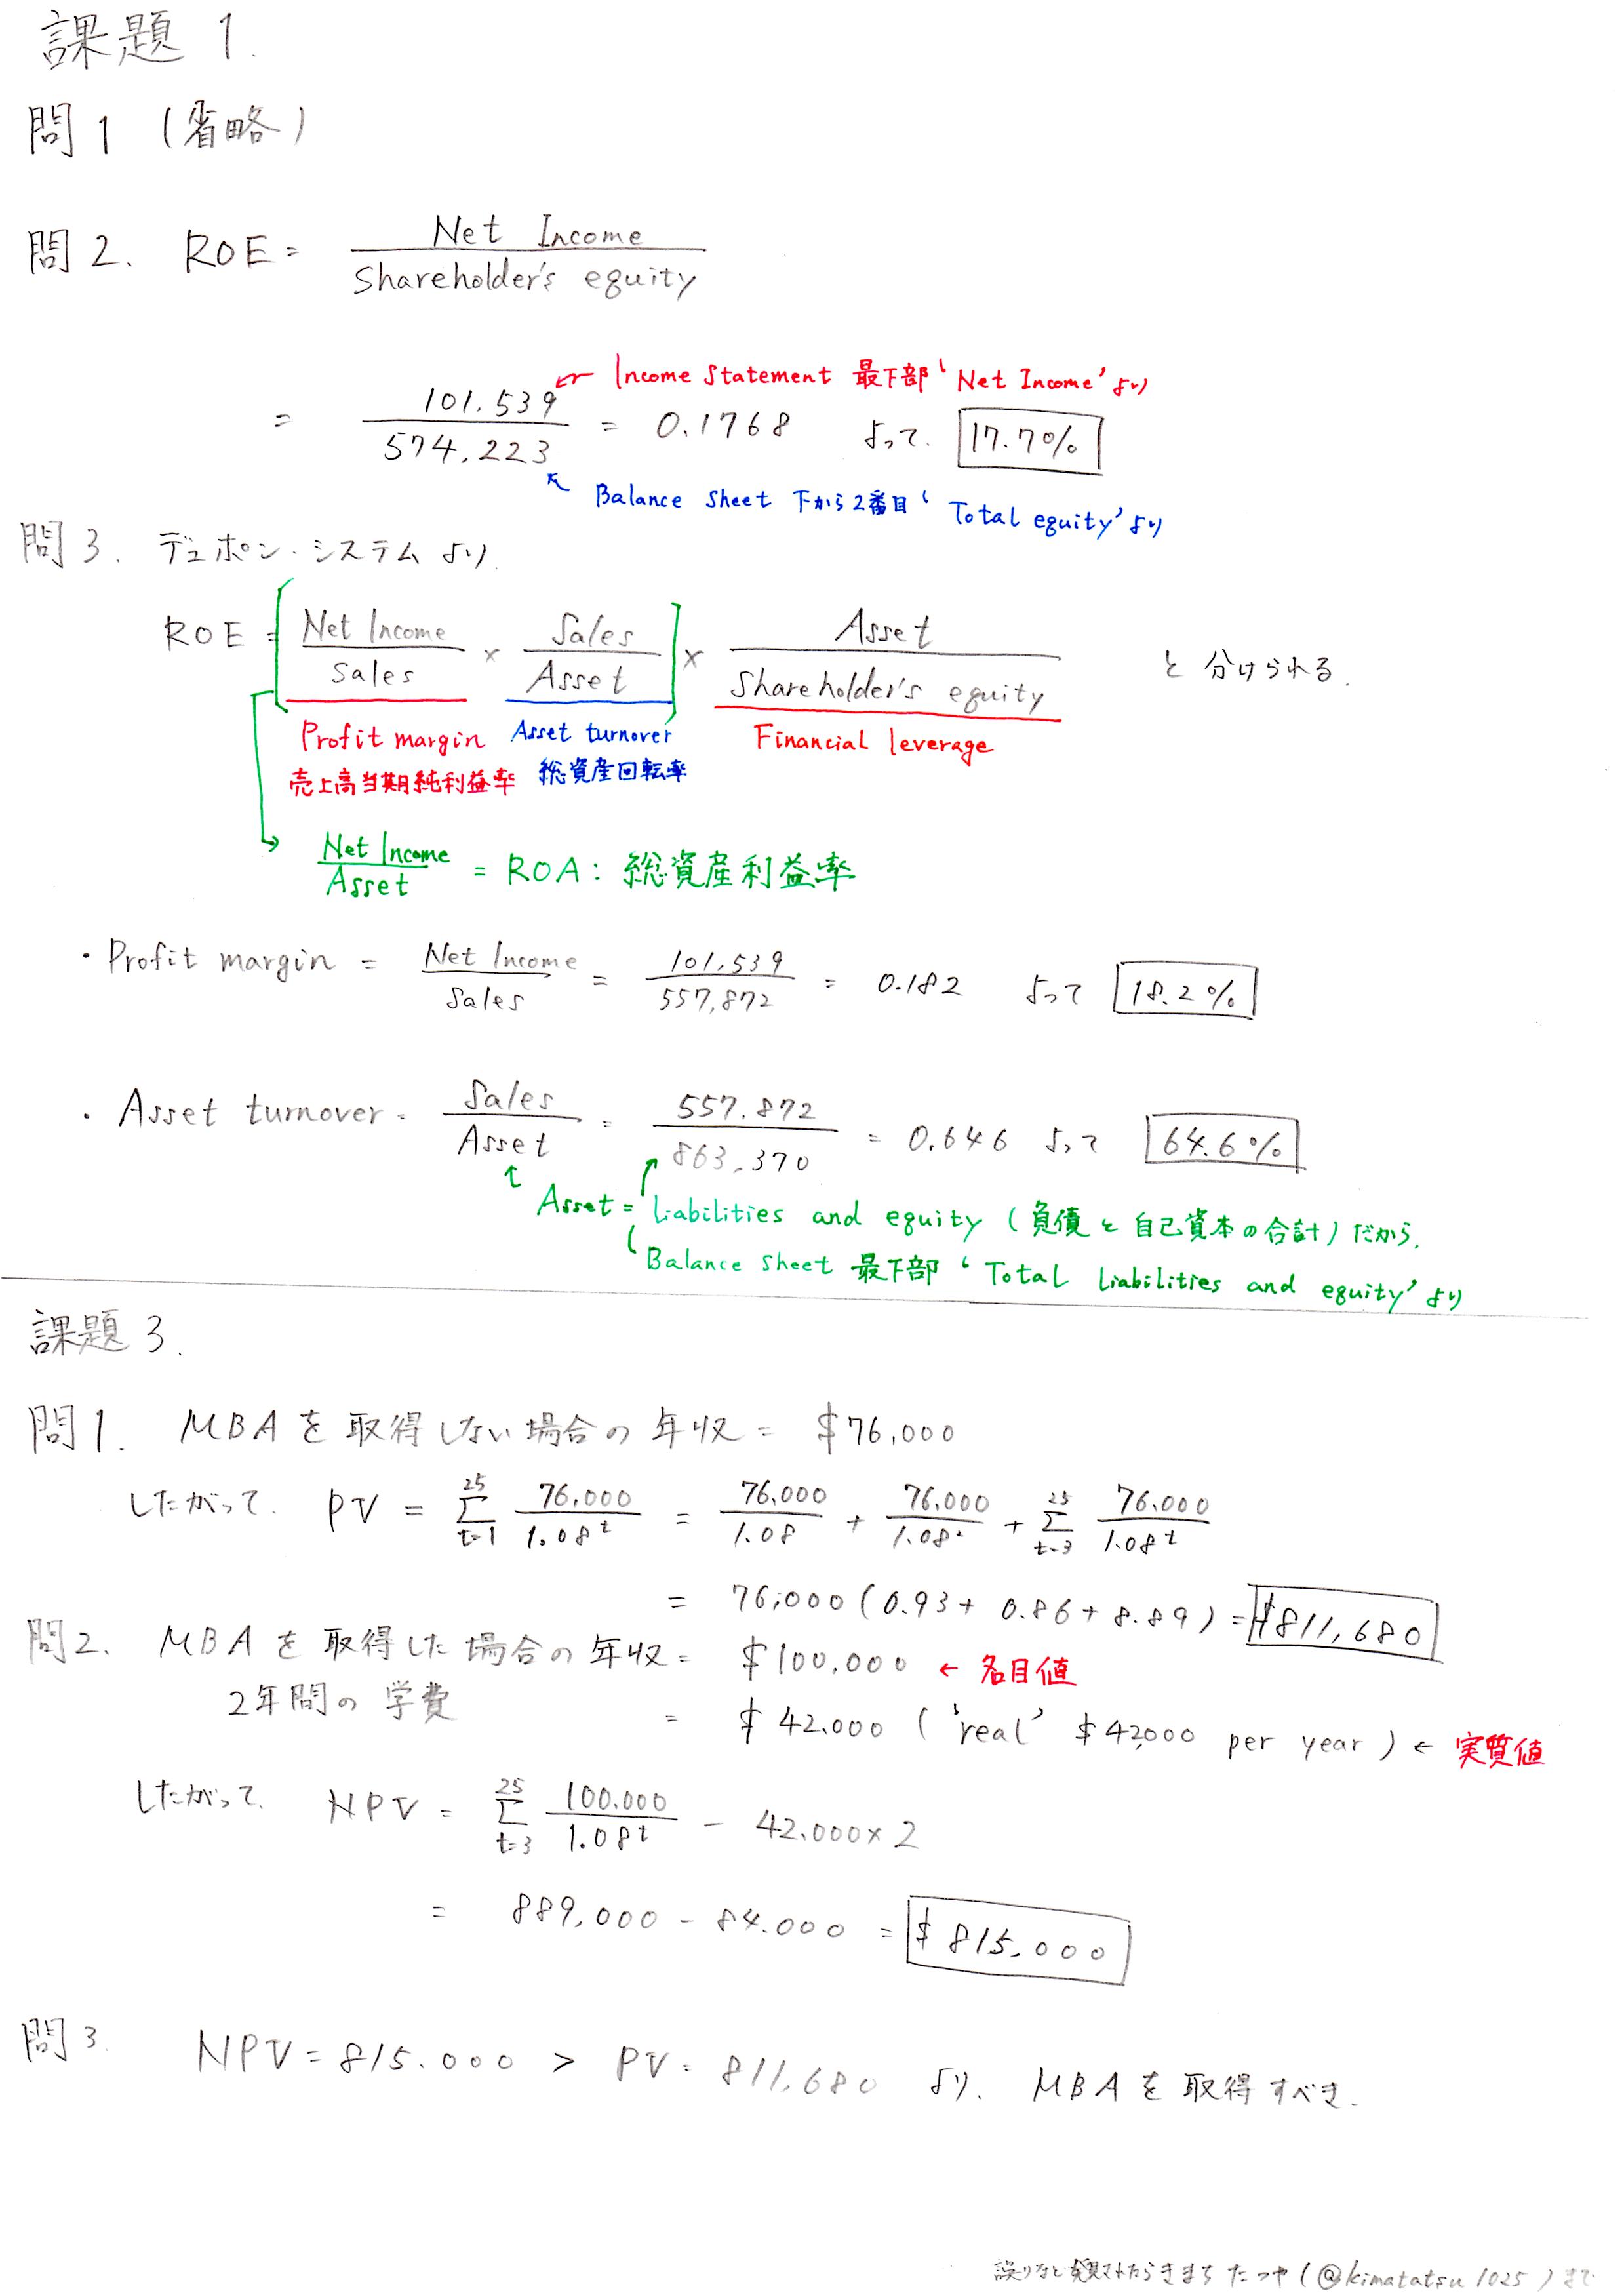 課題 1.
問1 (省略)
問2. ROE = Net Income / Shareholder's equity
= 101,539 / 574,223 = 0.1768 よって. 17.7%
← Income Statement 最下部 'Net Income' より
↖ Balance Sheet 下から2番目 'Total equity' より
問3. デュポン・システムより
ROE = [Net Income / Sales × Sales / Asset] × Asset / Shareholder's equity と分けられる.
Profit margin Asset turnover Financial leverage
売上高当期純利益率 総資産回転率
→ Net Income / Asset = ROA: 総資産利益率
・Profit margin = Net Income / Sales = 101,539 / 557,872 = 0.182 よって 18.2%
・Asset turnover = Sales / Asset = 557,872 / 863,370 = 0.646 よって 64.6%
↑ Asset = Liabilities and equity (負債と自己資本の合計) だから.
Balance Sheet 最下部 'Total Liabilities and equity' より
課題 3.
問1. MBAを取得しない場合の年収 = $76,000
したがって. PV = Σ[t=1→25] 76,000 / 1.08^t = 76,000 / 1.08 + 76,000 / 1.08² + Σ[t=3→25] 76,000 / 1.08^t
= 76,000 (0.93 + 0.86 + 8.89) = $811,680
問2. MBAを取得した場合の年収 = $100,000 ← 名目値
2年間の学費 = $42,000 ('real' $42,000 per year) ← 実質値
したがって. NPV = Σ[t=3→25] 100,000 / 1.08^t - 42,000×2
= 889,000 - 84,000 = $815,000
問3. NPV = 815,000 > PV = 811,680 より. MBAを取得すべき.
誤りなど発見したらきまちたつや (@kimatatsu1025) まで